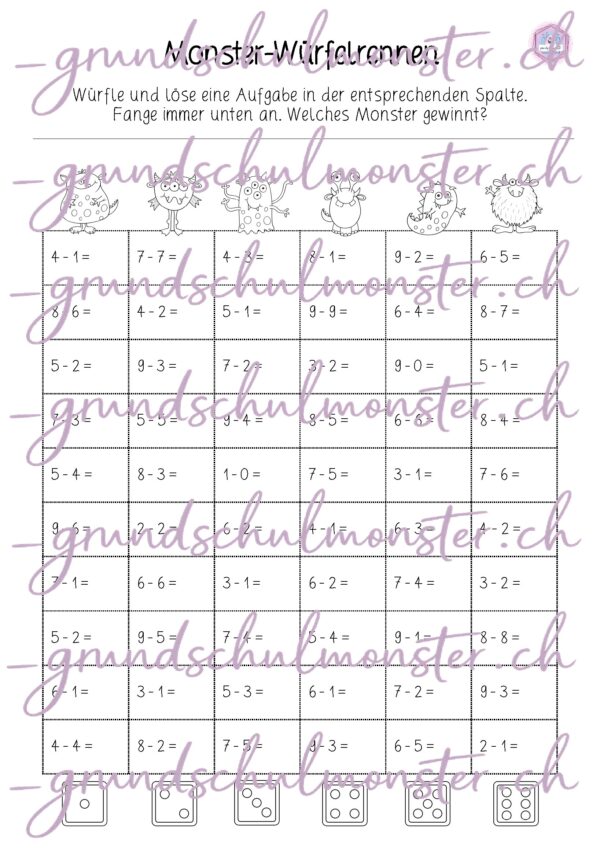 Monster-Würfelrennen
_grundschulmonster.ch
Würfle und löse eine Aufgabe in der entsprechenden Spalte.
Fange immer unten an. Welches Monster gewinnt?
_grundschulmonster.ch
4 - 1 = 7 - 7 = 4 - 3 = 8 - 1 = 9 - 2 = 6 - 5 =
_grundschulmonster.ch
8 - 6 = 4 - 2 = 5 - 1 = 9 - 9 = 6 - 4 = 8 - 7 =
5 - 2 = 9 - 3 = 7 - 2 = 3 - 2 = 9 - 0 = 5 - 1 =
_grundschulmonster.ch
7 - 3 = 5 - 5 = 9 - 4 = 8 - 5 = 6 - 6 = 8 - 4 =
5 - 4 = 8 - 3 = 1 - 0 = 7 - 5 = 3 - 1 = 7 - 6 =
_grundschulmonster.ch
9 - 6 = 2 - 2 = 6 - 2 = 4 - 1 = 6 - 3 = 4 - 2 =
7 - 1 = 6 - 6 = 3 - 1 = 6 - 2 = 7 - 4 = 3 - 2 =
5 - 2 = 9 - 5 = 7 - 4 = 5 - 4 = 9 - 1 = 8 - 8 =
_grundschulmonster.ch
6 - 1 = 3 - 1 = 5 - 3 = 6 - 1 = 7 - 2 = 9 - 3 =
4 - 4 = 8 - 2 = 7 - 5 = 9 - 3 = 6 - 5 = 2 - 1 =
_grundschulmonster.ch